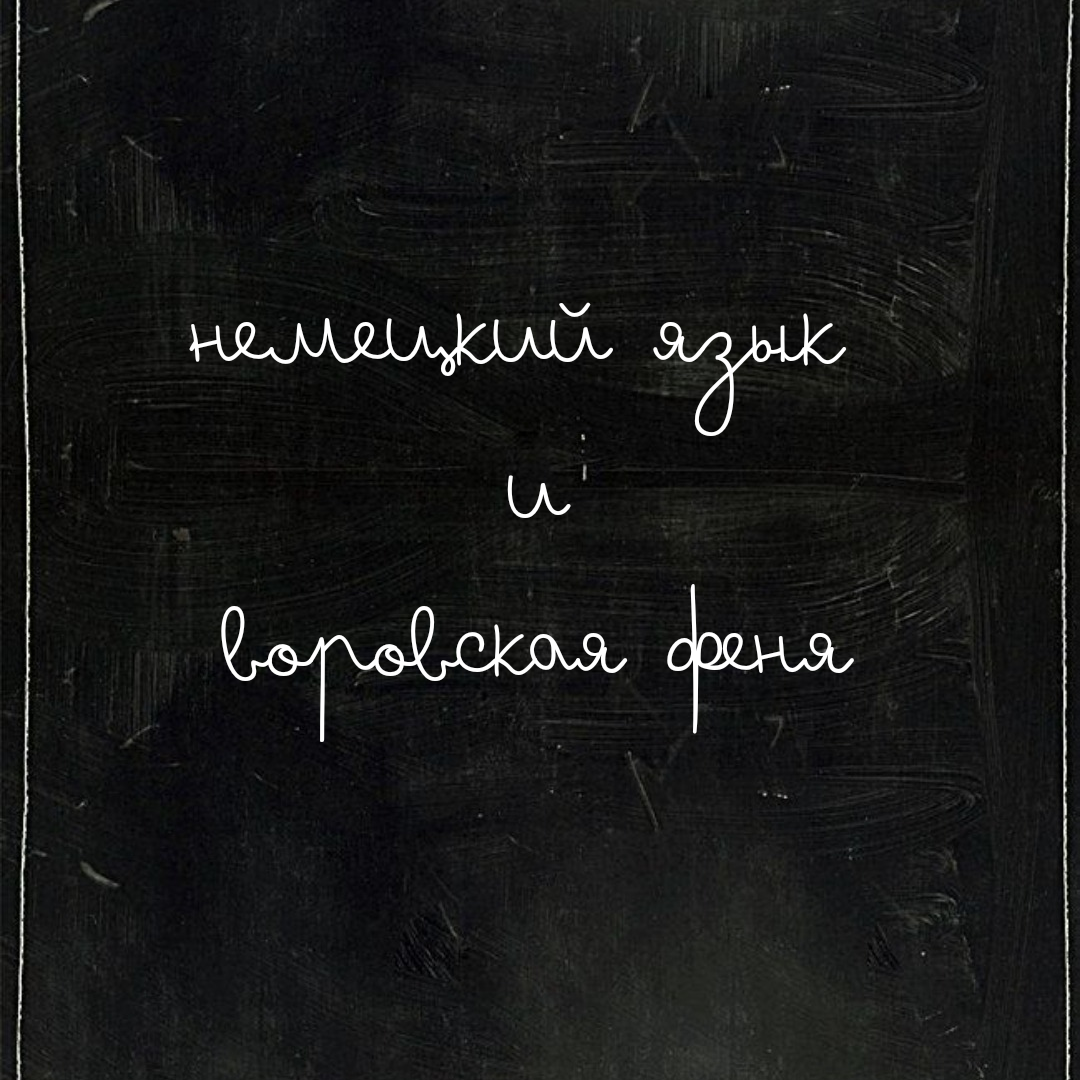 немецкий язык
и
воровская феня